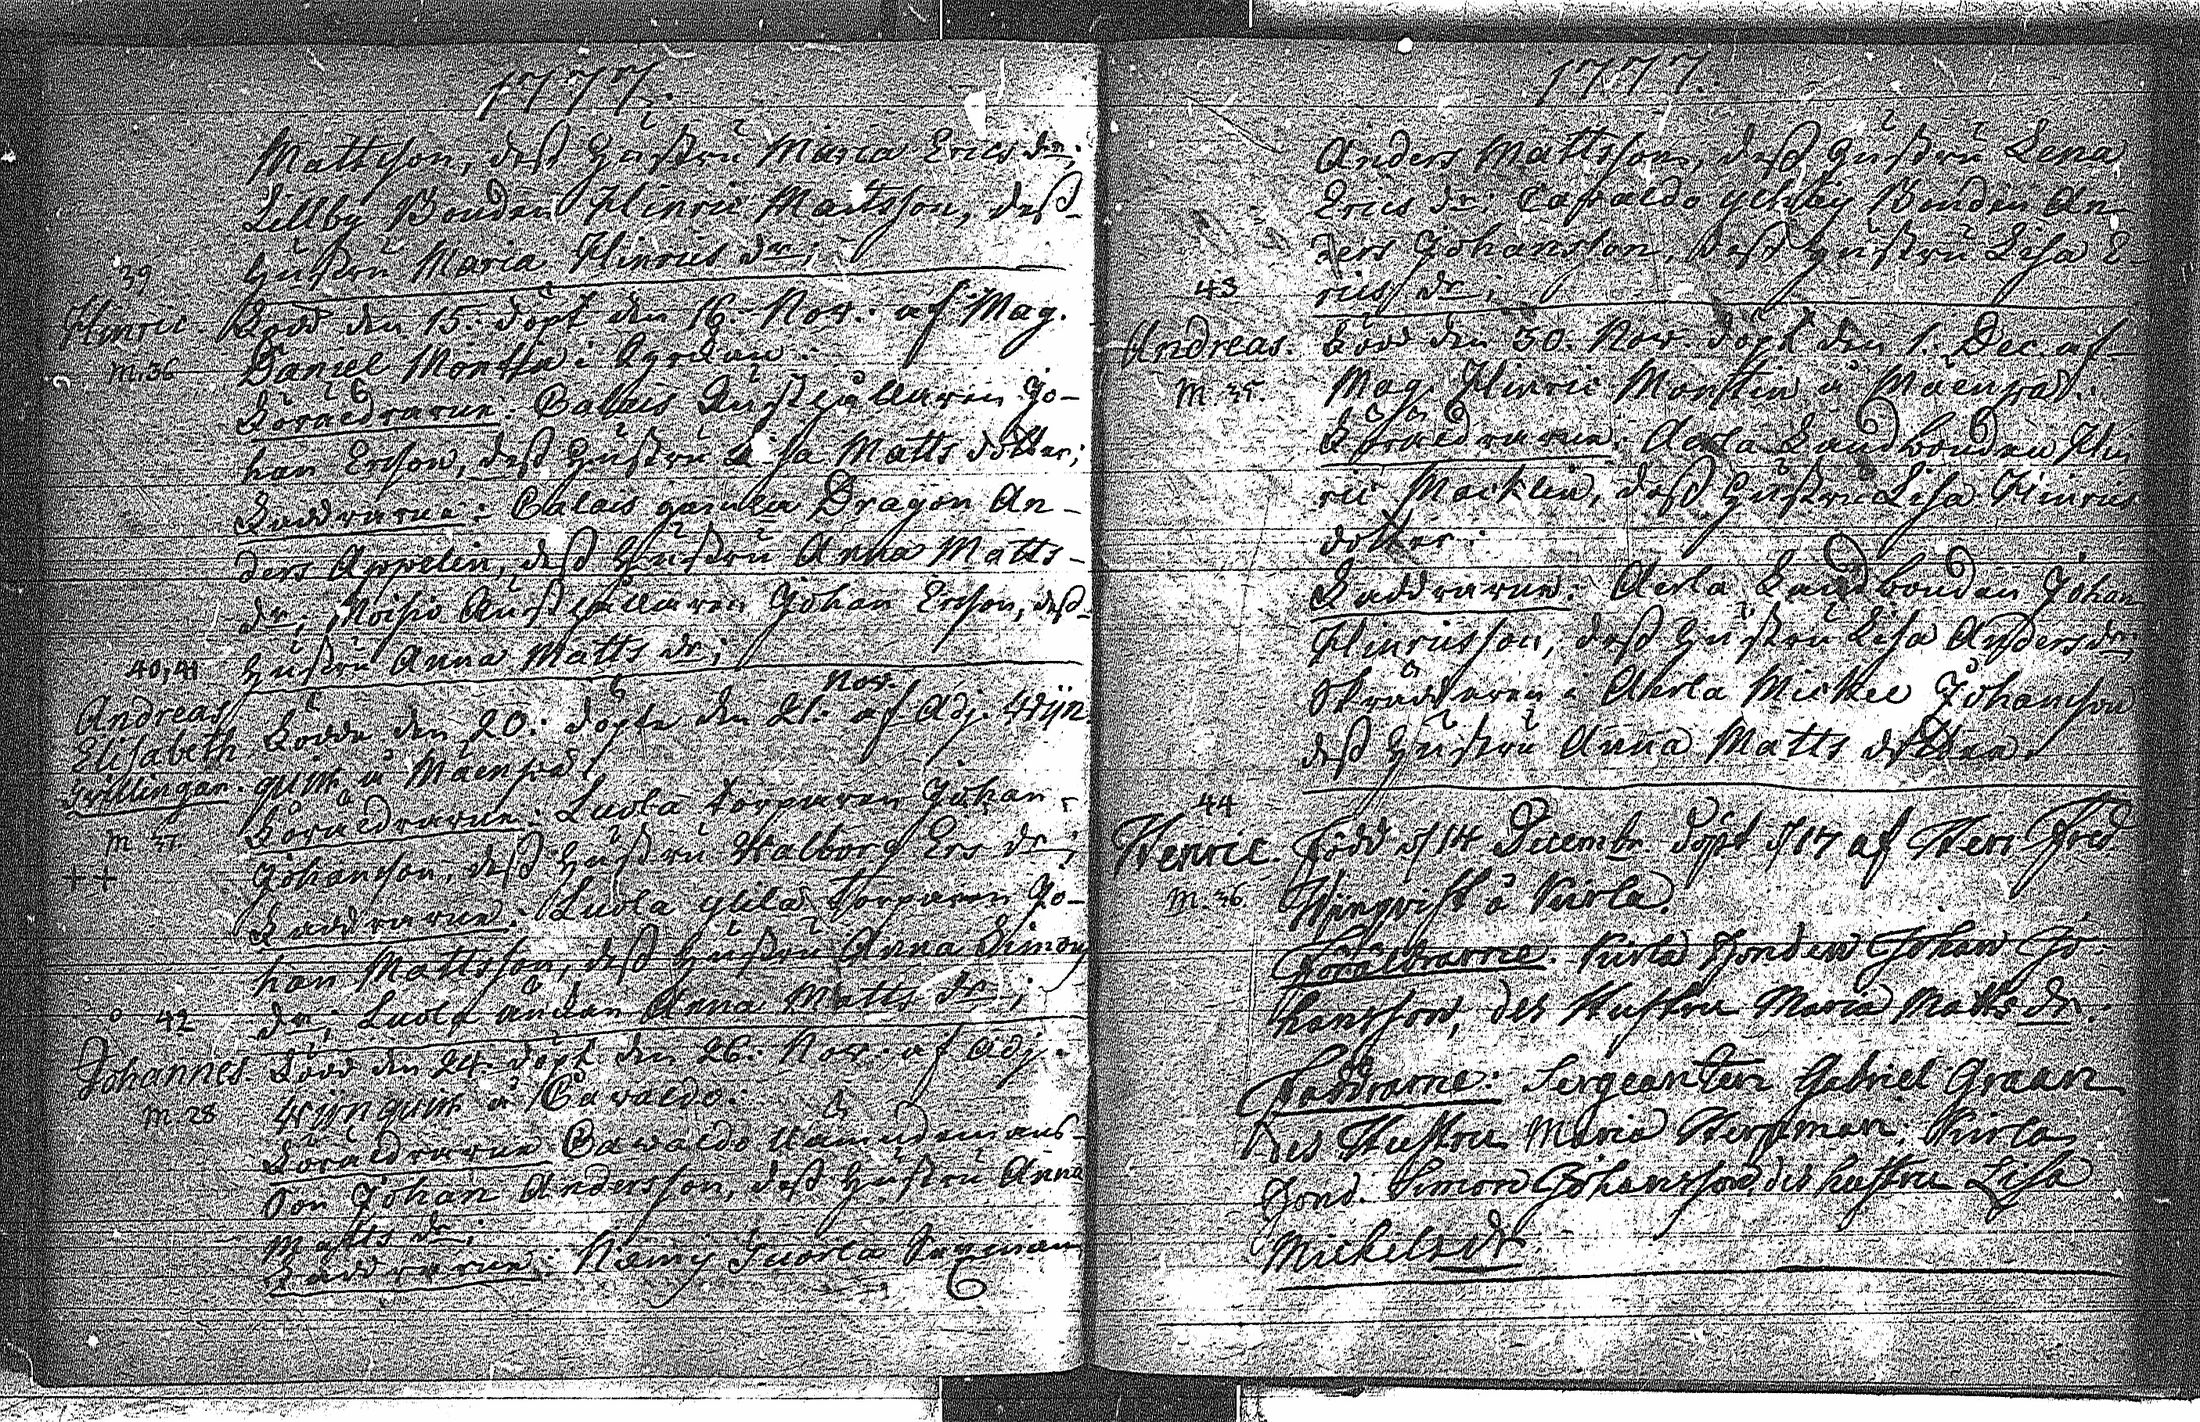 1777.
Mattsson, dess hustru Maria Erics dr;
Lillby Bonden Hinric Mattsson, dess
hustru Maria Hinrics dr;
39
Hinric. Född den 15. döpt den 16. Nov. af Mag.
M. 36 Daniel Montin i
Föräldrarne: Jo-
han Ersson, dess hustru Lisa Matts dotter;
Faddrarne: gamla Dragon An-
ders Appelin, dess hustru Anna Matts-
dr; Moisio Johan Ersson, dess
hustru Anna Matts dr;
40, 41
Nov.
Andreas Elisabeth Födde den 20. döpte den 21. af Adj. Wijn-
tvillingar. qvist å Mäenpää.
M 37. Föräldrarne: Luola Torparen Johan
Johansson, dess hustru Walborg Ers dr;
++
Faddrarne: Luola Torparen Jo-
han Mattsson, dess hustru Anna Simons
dr; Luola änkan Anna Matts dr;
42
Johannes. Född den 24. döpt den 26. Nov. af Adj.
M. 28 Wijnqvist å
Föräldrarne
Son Johan Andersson, dess hustru Anna
Matts dr;
Faddrarne: Niemij Juorla
1777.
Anders Mattsson, dess hustru Lena
Erics dr; Bonden An-
ders Johansson, dess hustru Lisa E-
rics dr;
43
Andreas. Född den 30. Nov. döpt den 1. Dec. af
M. 35. Mag. Hinric Montin å Mäenpää.
Föräldrarne: Landbonden Hin
ric Macklin, dess hustru Lisa Hinrics
dotter.
Faddrarne: Landbonden Johan
Hinricsson, dess hustru Lisa Anders dr;
Skräddaren i Mickel Johansson
dess hustru Anna Matts dotter.
44
Henric. Född d 14 Decembr döpt d 17 af Herr Fred.
M. 36 Winqvist å Kirla.
Föräldrarne: Kirla Bonden Johan Jo-
hansson, des Hustru Maria Matts dr.
Faddrarne: Sergeanten Gabriel Graan
des Hustru Maria Bergman, Kirla
Bond. Simon Johansson, des hustru Lisa
Mickels dr